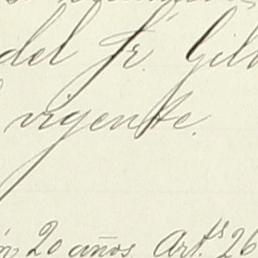 del Sr. Gil
vigente.
20 años. Art.ts 26